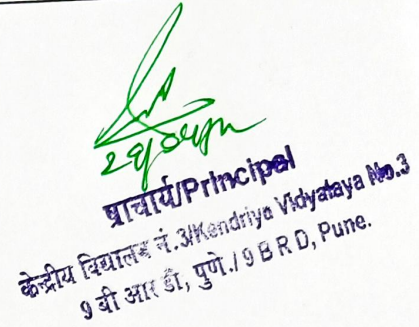 प्राचार्य/Principal
केन्द्रीय विद्यालय नं.3/Kendriya Vidyalaya No.3
9 बी आर डी, पुणे./9 B R D, Pune.